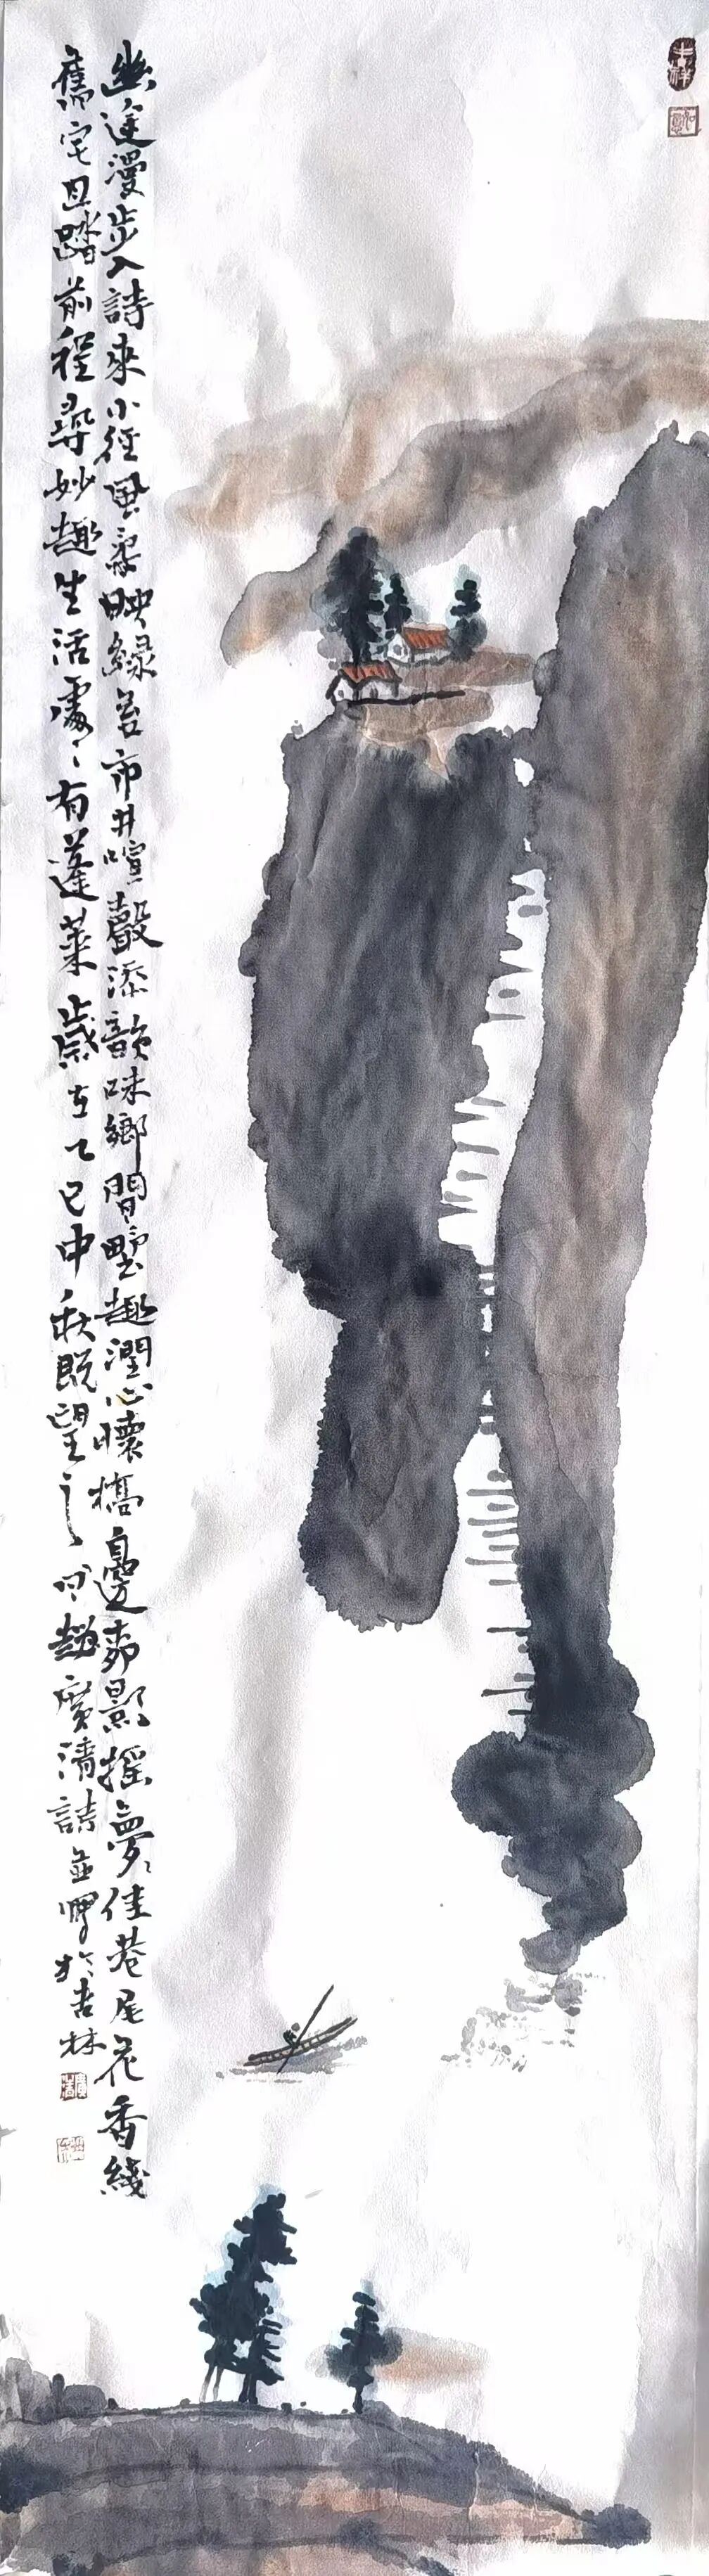 吉祥
如意
幽途漫步入詩來小徑風柔映綠苔市井喧聲添韻味鄉間野趣潤心懷橋邊柳影搖夢佳巷尾花香繞
舊宅且踏前程尋妙趣生活處〻有蓬萊歲在乙巳中秋既望之日趙廣清詩並畫於吉林